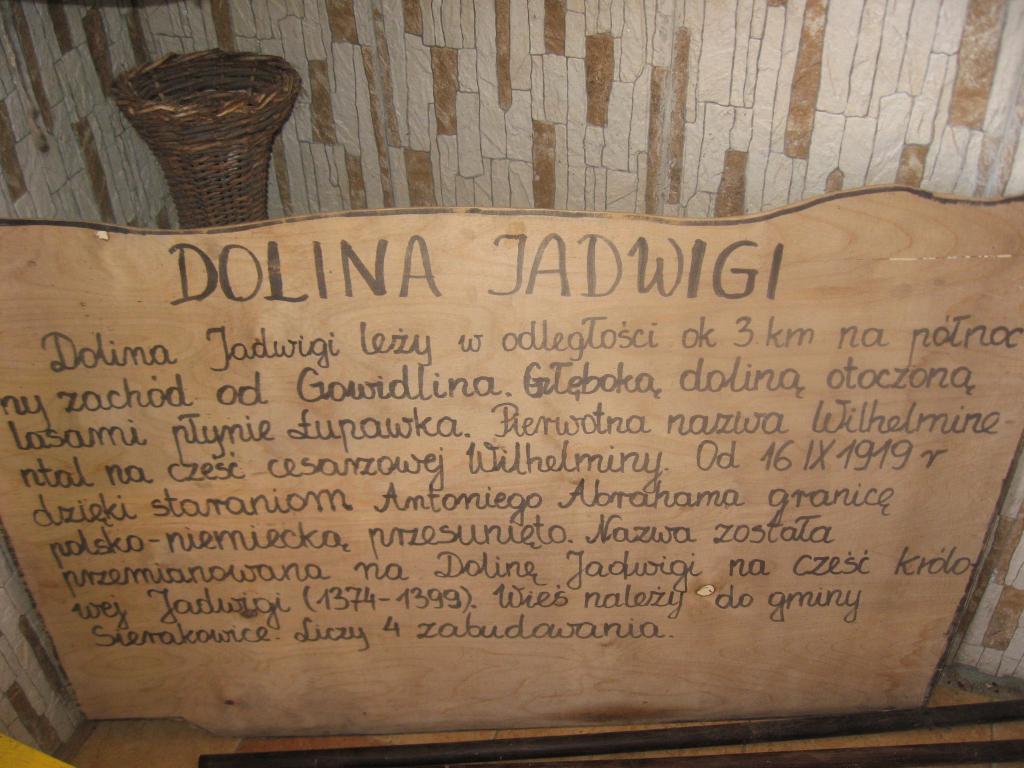 DOLINA JADWIGI
Dolina Jadwigi leży w odległości ok 3 km na północ
ny zachód od Gowidlina. Głęboką doliną otoczoną
lasami płynie Łupawka. Pierwotna nazwa Wilhelmine-
ntal na cześć cesarzowej Wilhelminy. Od 16 IX 1919 r
dzięki staraniom Antoniego Abrahama granicę
polsko-niemiecką przesunięto. Nazwa została
przemianowana na Dolinę Jadwigi na cześć królo-
wej Jadwigi (1374-1399). Wieś należy do gminy
Sierakowice. Liczy 4 zabudowania.